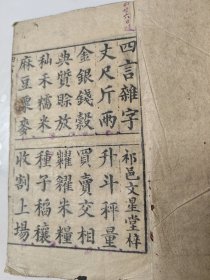 四言雜字 祁邑文星堂梓
丈尺斤兩 升斗秤量
金銀錢穀 買賣交相
典質賒放 糶糴米糧
秈禾糯米 種子稻穰
麻豆麥 收割上場